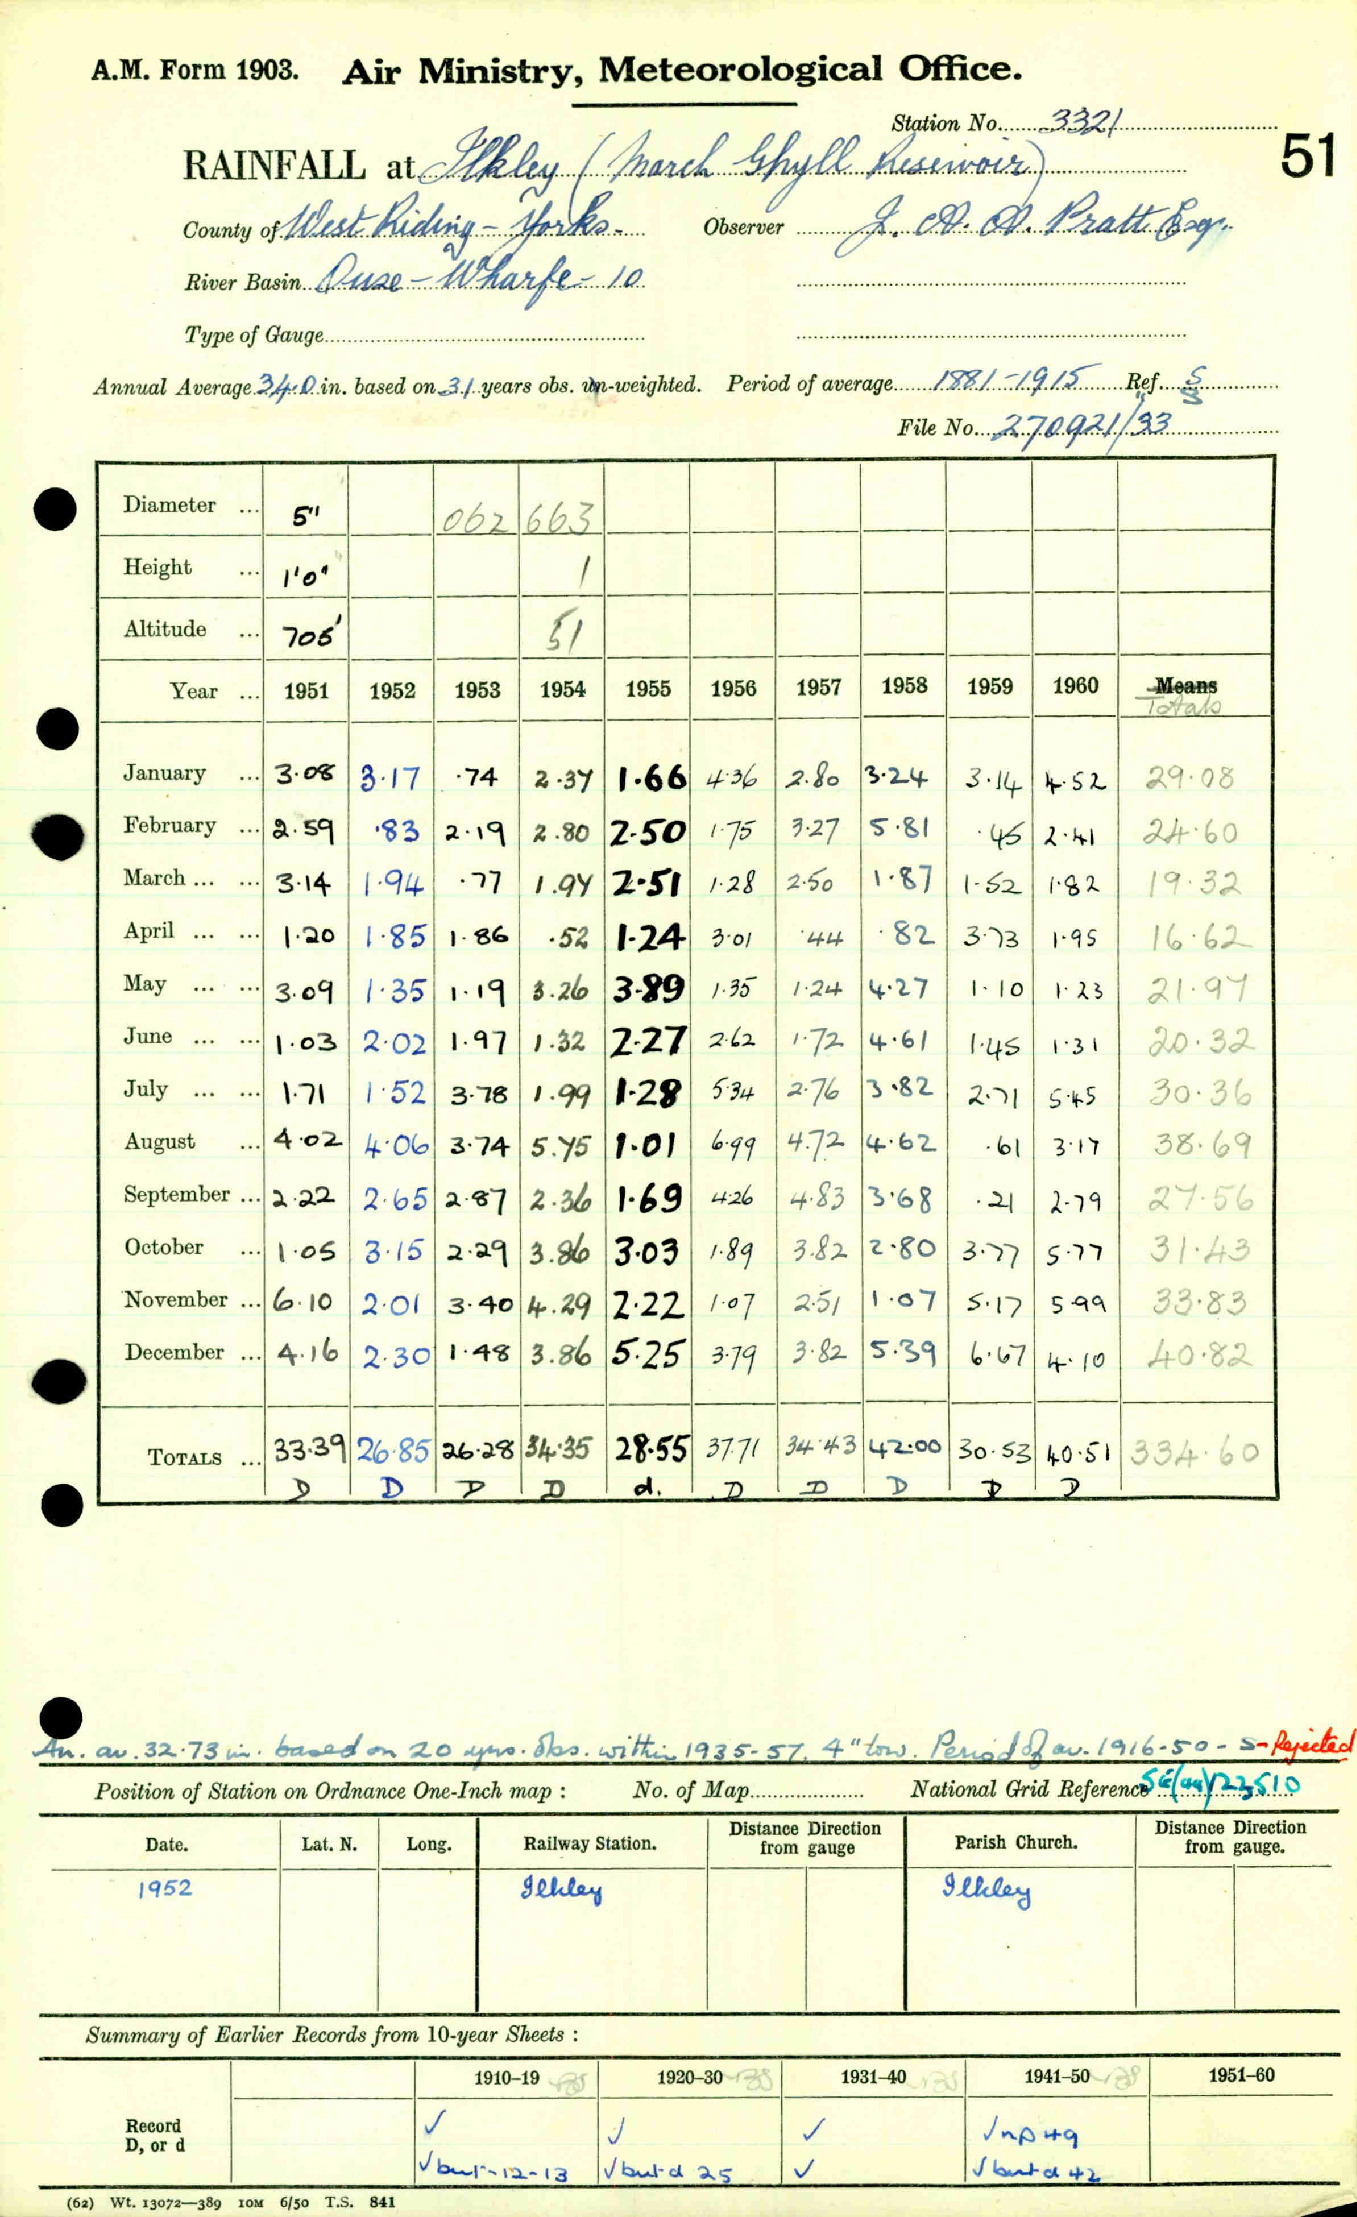 A.M. Form 1903. Air Ministry, Meteorological Office.
Station No. 3321
51
RAINFALL at Ilkley (March Ghyll Reservoir)
County of West Riding - Yorks. Observer J. A. A. Pratt Esq.
River Basin Ouse - Wharfe - 10
Type of Gauge
Annual Average 34.0 in. based on 31 years obs. un-weighted. Period of average 1881-1915 Ref. S
File No. 270921/33
Diameter ... 5" 062 663
Height ... 1'0" 1
Altitude ... 705' 51
Year ... 1951 1952 1953 1954 1955 1956 1957 1958 1959 1960 Means
Totals
January ... 3.08 3.17 .74 2.37 1.66 4.36 2.80 3.24 3.14 4.52 29.08
February ... 2.59 .83 2.19 2.80 2.50 1.75 3.27 5.81 .45 2.41 24.60
March ... ... 3.14 1.94 .77 1.97 2.51 1.28 2.50 1.87 1.52 1.82 19.32
April ... ... 1.20 1.85 1.86 .52 1.24 3.01 .44 .82 3.73 1.95 16.62
May ... ... 3.09 1.35 1.19 3.26 3.89 1.35 1.24 4.27 1.10 1.23 21.97
June ... ... 1.03 2.02 1.97 1.32 2.27 2.62 1.72 4.61 1.45 1.31 20.32
July ... ... 1.71 1.52 3.78 1.99 1.28 5.34 2.76 3.82 2.71 5.45 30.36
August ... 4.02 4.06 3.74 5.75 1.01 6.99 4.72 4.62 .61 3.17 38.69
September ... 2.22 2.65 2.87 2.36 1.69 4.26 4.83 3.68 .21 2.79 27.56
October ... 1.05 3.15 2.29 3.86 3.03 1.89 3.82 2.80 3.77 5.77 31.43
November ... 6.10 2.01 3.40 4.29 2.22 1.07 2.51 1.07 5.17 5.99 33.83
December ... 4.16 2.30 1.48 3.86 5.25 3.79 3.82 5.39 6.67 4.10 40.82
TOTALS ... 33.39 26.85 26.28 34.35 28.55 37.71 34.43 42.00 30.53 40.51 334.60
D D D D d. D D D D D
An. av. 32.73 in. based on 20 yrs. obs. within 1935-57. 4" low. Period of av. 1916-50 - S - Rejected
Position of Station on Ordnance One-Inch map : No. of Map National Grid Reference SE(44)123510
Date. Lat. N. Long. Railway Station. Distance from Direction gauge Parish Church. Distance from Direction gauge.
1952 Ilkley Ilkley
Summary of Earlier Records from 10-year Sheets :
1910–19 1920–30 1931–40 1941–50 1951–60
Record ✓ ✓ ✓ ✓ np 49
D, or d ✓ but -12-13 ✓ but d 25 ✓ ✓ but d 42
(62) Wt. 13072—389 10M 6/50 T.S. 841